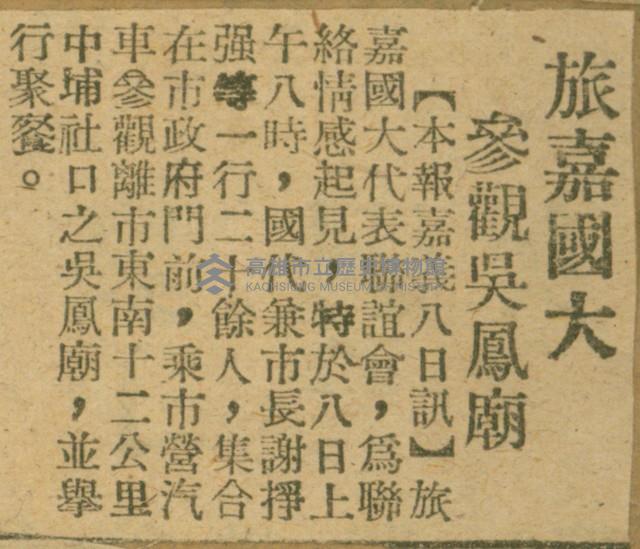 旅嘉國大
參觀吳鳳廟
【本報嘉義八日訊】旅
嘉國大代表聯誼會，爲聯
絡情感起見，特於八日上
午八時，國代兼市長謝掙
强等一行二十餘人，集合
在市政府門前，乘市營汽
車參觀離市東南十二公里
中埔社口之吳鳳廟，並舉
行聚餐。
高雄市立歷史博物館
KAOHSIUNG MUSEUM OF HISTORY